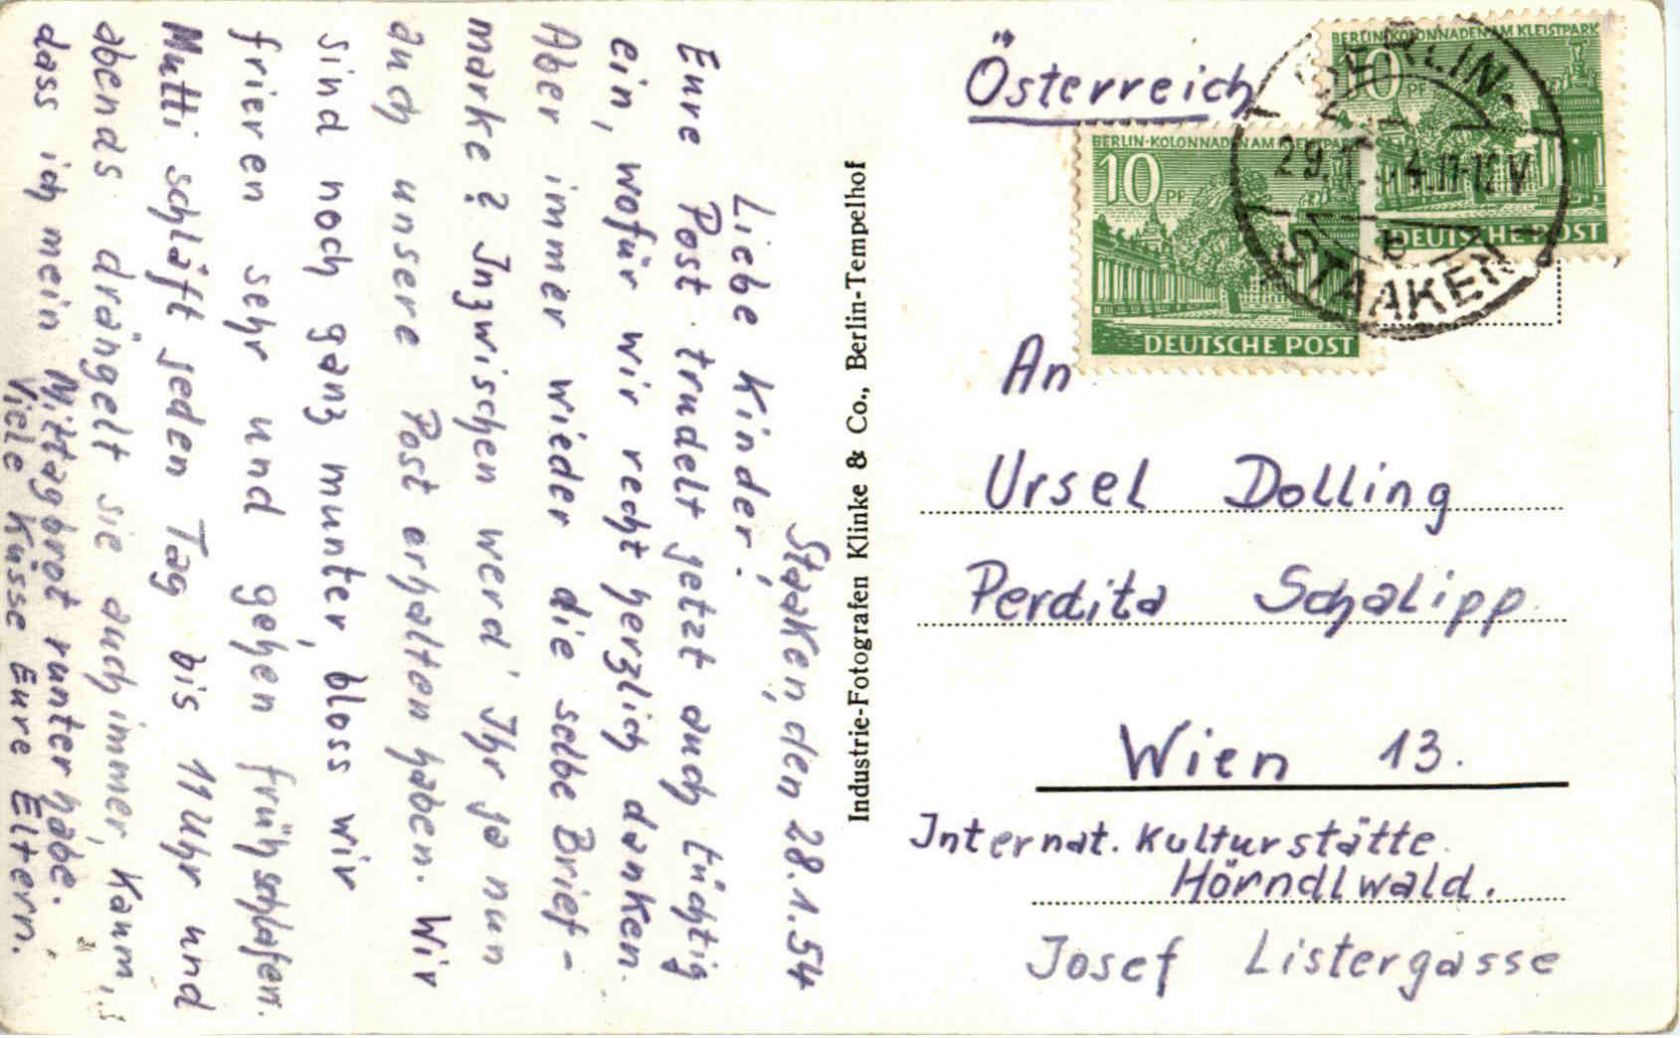 Staaken, den 28.1.54
Liebe Kinder!
Eure Post trudelt jetzt auch tüchtig
ein, wofür wir recht herzlich danken.
Aber immer wieder die selbe Brief-
marke? Inzwischen werd' Ihr ja nun
auch unsere Post erhalten haben. Wir
sind noch ganz munter, bloss wir
frieren sehr und gehen früh schlafen.
Mutti schläft jeden Tag bis 11 Uhr und
abends drängelt sie auch immer, kaum,
dass ich mein Mittagbrot runter habe.
Viele Küsse Eure Eltern.
Industrie-Fotografen Klinke & Co., Berlin-Tempelhof
Österreich
BERLIN-KOLONNADEN AM KLEISTPARK
10 PF
DEUTSCHE POST
BERLIN-KOLONNADEN AM KLEISTPARK
10 PF
DEUTSCHE POST
BERLIN-
STAAKEN
An
Ursel Dolling
Perdita Schalipp
Wien 13.
Internat. Kulturstätte
Hörndlwald.
Josef Listergasse